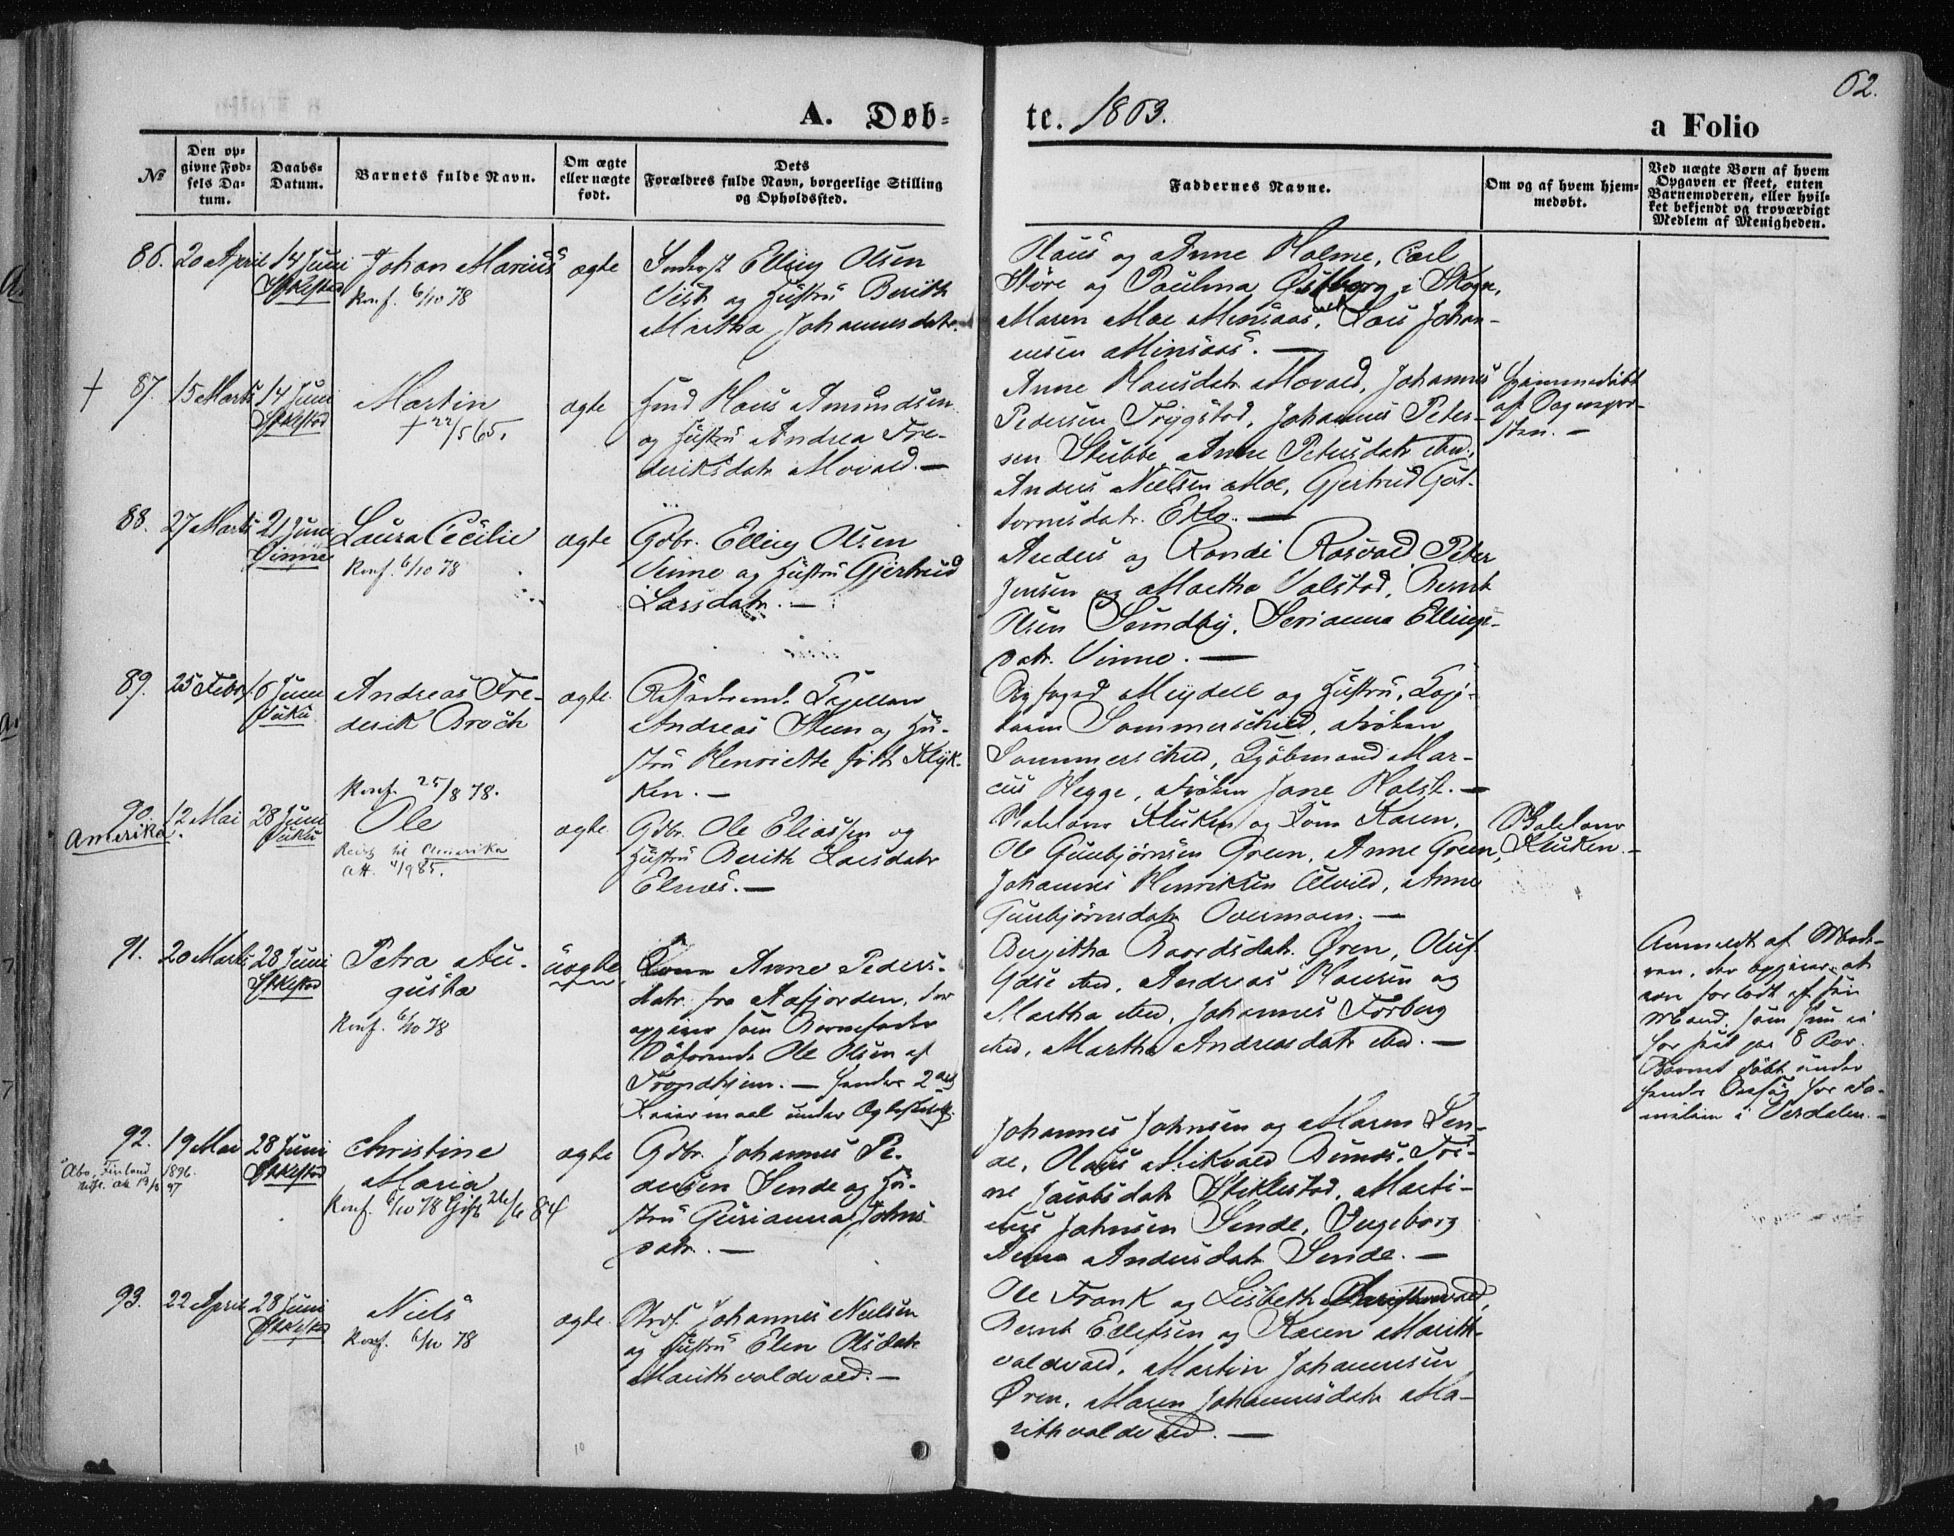 62.
A. Døb-
te. 1863.
a Folio
No
Den op-
givne Fød-
sels Da-
tum.
Daabs-
Datum.
Barnets fulde Navn.
Om ægte
eller uægte
født.
Dets
Forældres fulde Navn, borgerlige Stilling
og Opholdssted.
Faddernes Navne.
Om og af hvem hjem-
medøbt.
Ved uægte Børn af hvem
Opgaven er skeet, enten
Barnemoderen, eller hvil-
ket bekjendt og troværdigt
Medlem af Menigheden.
86. 20 April 14 Juni
Johan Marius
Konf. 6/10 78
ægte
Inderst Elling Olsen
og Hustru Berith
Martha Johannesdatr.
Claus og Anne Holme, Carl
Støre og Paulina Østborg i Skogn,
Maren Moe Minsaas, Lars Johan-
nesen Minsaas. —
+ 87. 15 Marts 14 Juni
Stiklestad
Martin
+ 22/5 65.
ægte
Hmd Claus Amundsen
og Hustru Andrea Fre-
deriksdatr Movald. —
Anne Clausdatr Movald, Johannes
Pedersen Trygstad, Johannes Peter-
sen Stubbe, Anne Petersdatr ibd.,
Anders Nielsen Moe, Gjertrud Gut-
tormsdatr. Eklo. —
Hjemmedøbt
af
88. 27 Marts 21 Juni
Vinne
Laura Cecilie
Konf. 6/10 78
ægte
Gdbr. Elling Olsen
Vinne og Hustru Gjertrud
Larsdatr. —
Anders og Randi Rosvold, Peter
Jensen og Martha Valstad, Bernt
Olsen Sundby, Serianna Ellings-
datr. Vinne. —
89. 25 Febr 6 Juni
Vuku
Andreas Fre-
derik Broch
Konf. 25/8 78.
ægte
Residerende Capellan
Andreas Steen og Hu-
stru Henriette født Klyk-
ken. —
Meydell og Hustru,
Sommerschild, Frøken
Sommerschild, Kjøbmand Mar-
cus Hegge, Frøken Jane Holst. —
90. 12 Mai 28 Juni
Amerika.
Vuku
Ole
Reist til Amerika
att. 4/9 85.
ægte
Gdbr. Ole Eliassen og
Hustru Berith Larsdatr
Elnes. —
Kluken og Kone Karen,
Ole Gunbjørnsen Green, Anne Green,
Johannes Henriksen Ulvild, Anne
Gunbjørnsdatr Overmoen. —
Kluken. —
91. 20 Marts 28 Juni
Stiklestad
Petra Au-
gusta
Konf. 6/10 78
uægte
Kone Anne Peders-
datr. fra Aafjorden, der
opgiver som Barnefader
Ole Olsen af
Trondhjem. — hendes 2det
Leiermaal under
Bergitha Baardsdatr. Øren, Oluf
ibd, Andreas Hansen og
Martha ibd, Johannes Forberg
ibd, Martha Andreasdatr ibd. —
Anmeldt af Mode-
ren, der opgiver at
være forladt af sin
Mand, som hun ei
har seet paa 8 Aar.
Barnet døbt under
hendes Besøg hos Fa-
milien i Verdalen. —
92. 19 Mai 28 Juni
Stiklestad
Åbo, Finland 1896.
Christine
Maria
Konf. 6/10 78 Gift 26/6 84
ægte
Gdbr. Johannes Pe-
dersen Sende og Hu-
stru Gurianna Johns-
datr. —
Johannes Johnsen og Maren Sen-
de, Claus Mikvold Tri-
ne Jacobsdatr Stiklestad, Marti-
nus Johnsen Sende, Ingeborg
Anna Andersdatr Sende. —
93. 22 April 28 Juni
Niels
Konf. 6/10 78
ægte
Johannes Nielsen
og Hustru Elen Olsdatr
Marithvoldvald. —
Ole Frank og Lisbeth
Bernt Ellefsen og Karen Marith-
voldvald, Martin Johannesen
Øren, Maren Johannesdatr Ma-
rithvoldvald. —
10